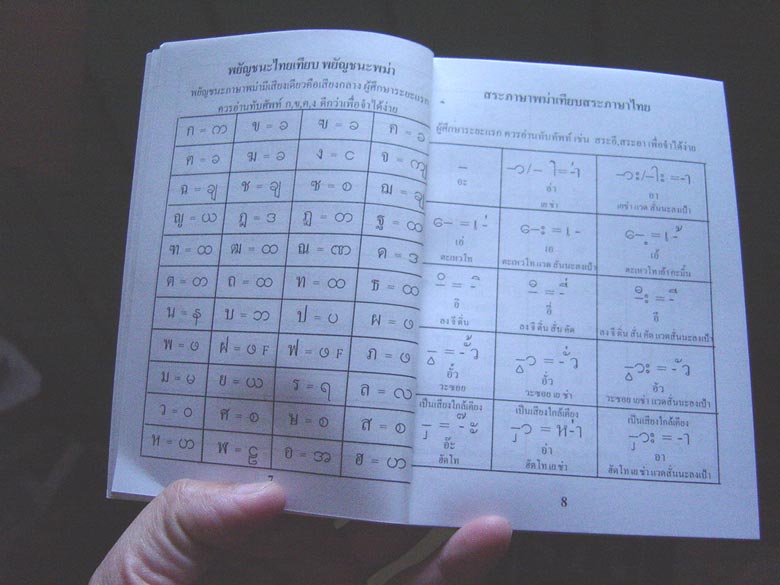 พยัญชนะไทยเทียบ พยัญชนะพม่า
พยัญชนะภาษาพม่ามีเสียงเดียวคือเสียงกลาง ผู้ศึกษาระยะแรก
ควรอ่านทับศัพท์ ก,ข,ค,ง ดีกว่าเพื่อจำได้ง่าย
ก = က ข = ခ ฃ = ခ ค = ခ
ฅ = ခ ฆ = ခ ง = င จ = ကျ
ฉ = ချ ช = ချ ซ = စ ฌ = ချ
ญ = ယ ฎ = ဒ ฏ = တ ฐ = ထ
ฑ = ထ ฒ = ထ ณ = ဏ ด = ဒ
ต = တ ถ = ထ ท = ထ ธ = ထ
น = န บ = ဘ ป = ပ ผ = ဖ
พ = ဖ ฝ = ဖ F ฟ = ဖ F ภ = ဖ
ม = မ ย = ယ ร = ရ ล = လ
ว = ဝ ศ = စ ษ = စ ส = စ
ห = ဟ ฬ = ဠ อ = အ ฮ = ဟ
7
สระภาษาพม่าเทียบสระภาษาไทย
ผู้ศึกษาระยะแรก ควรอ่านทับศัพท์ เช่น สระอี,สระอา เพื่อจำได้ง่าย
อะ อ่า อา
เย ช่า เยช่า แวด สั่นนะลงเป้า
เอ่ เอ เอ้
ตะเหวโท ตะเหวโท แวด สั่นนะลงเป้า ตะเหวโท เอ้า กะมิ่น
อิ อี่ อี
ลง จี ติ่น ลง จี ติ่น สั่น คัด ลง จี ติ่น สั่น คัด แวดสั่นนะลงเป้า
อั้ว อั่ว อัว
วะซอย วะซอย เย ช่า วะซอย เย ช่า แวดสั่นนะลงเป้า
เป็นเสียงใกล้เคียง เป็นเสียงใกล้เคียง เป็นเสียงใกล้เคียง
อ๊ะ อ่า อา
ฮัดโท ฮัดโท เย ช่า ฮัดโท เย ช่า แวดสั่นนะลงเป้า
8